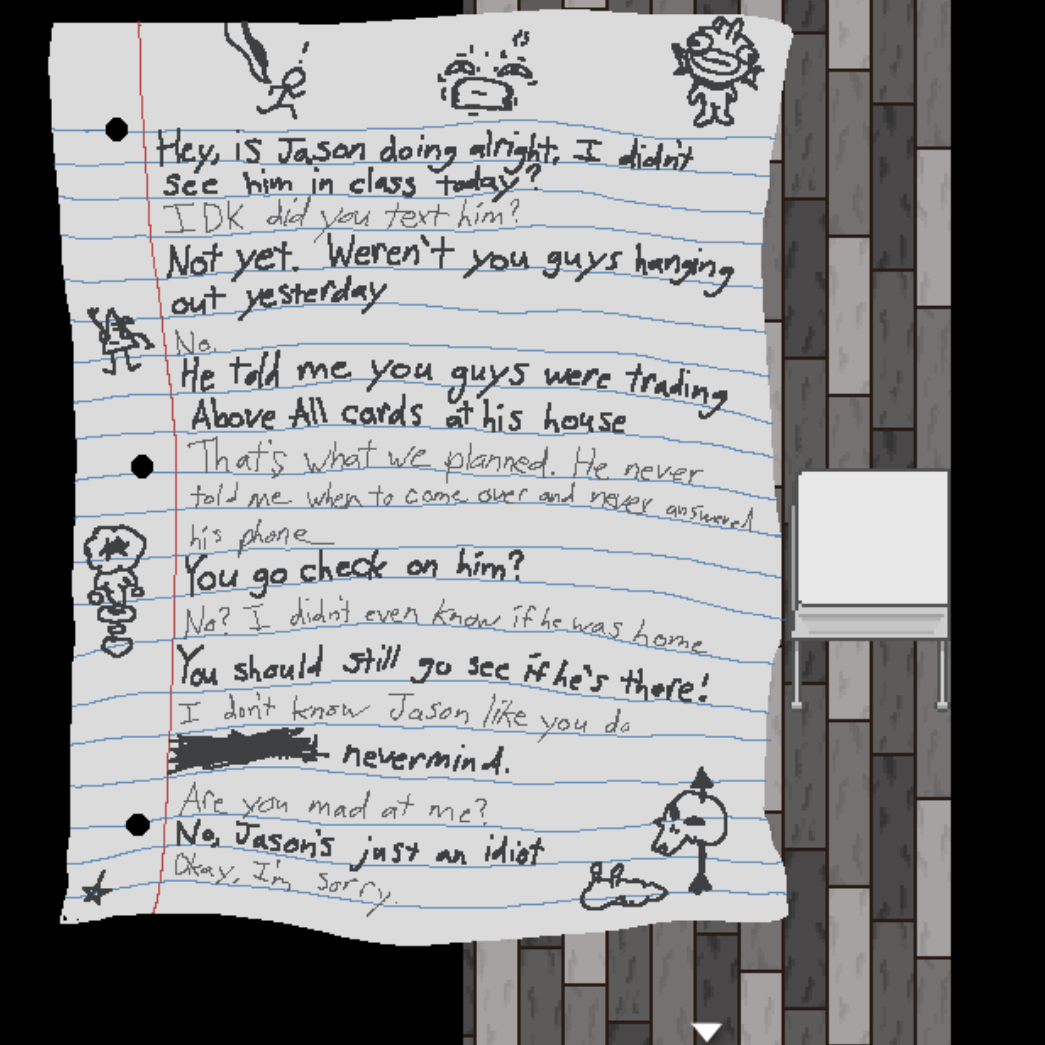 Hey, is Jason doing alright. I didn't
see him in class today?
IDK did you text him?
Not yet. Weren't you guys hanging
out yesterday
No.
He told me you guys were trading
Above All cards at his house
That's what we planned. He never
told me when to come over and never answered
his phone
You go check on him?
No? I didn't even know if he was home
You should still go see if he's there!
I don't know Jason like you do
nevermind.
Are you mad at me?
No, Jason's just an idiot
Okay, I'm sorry.